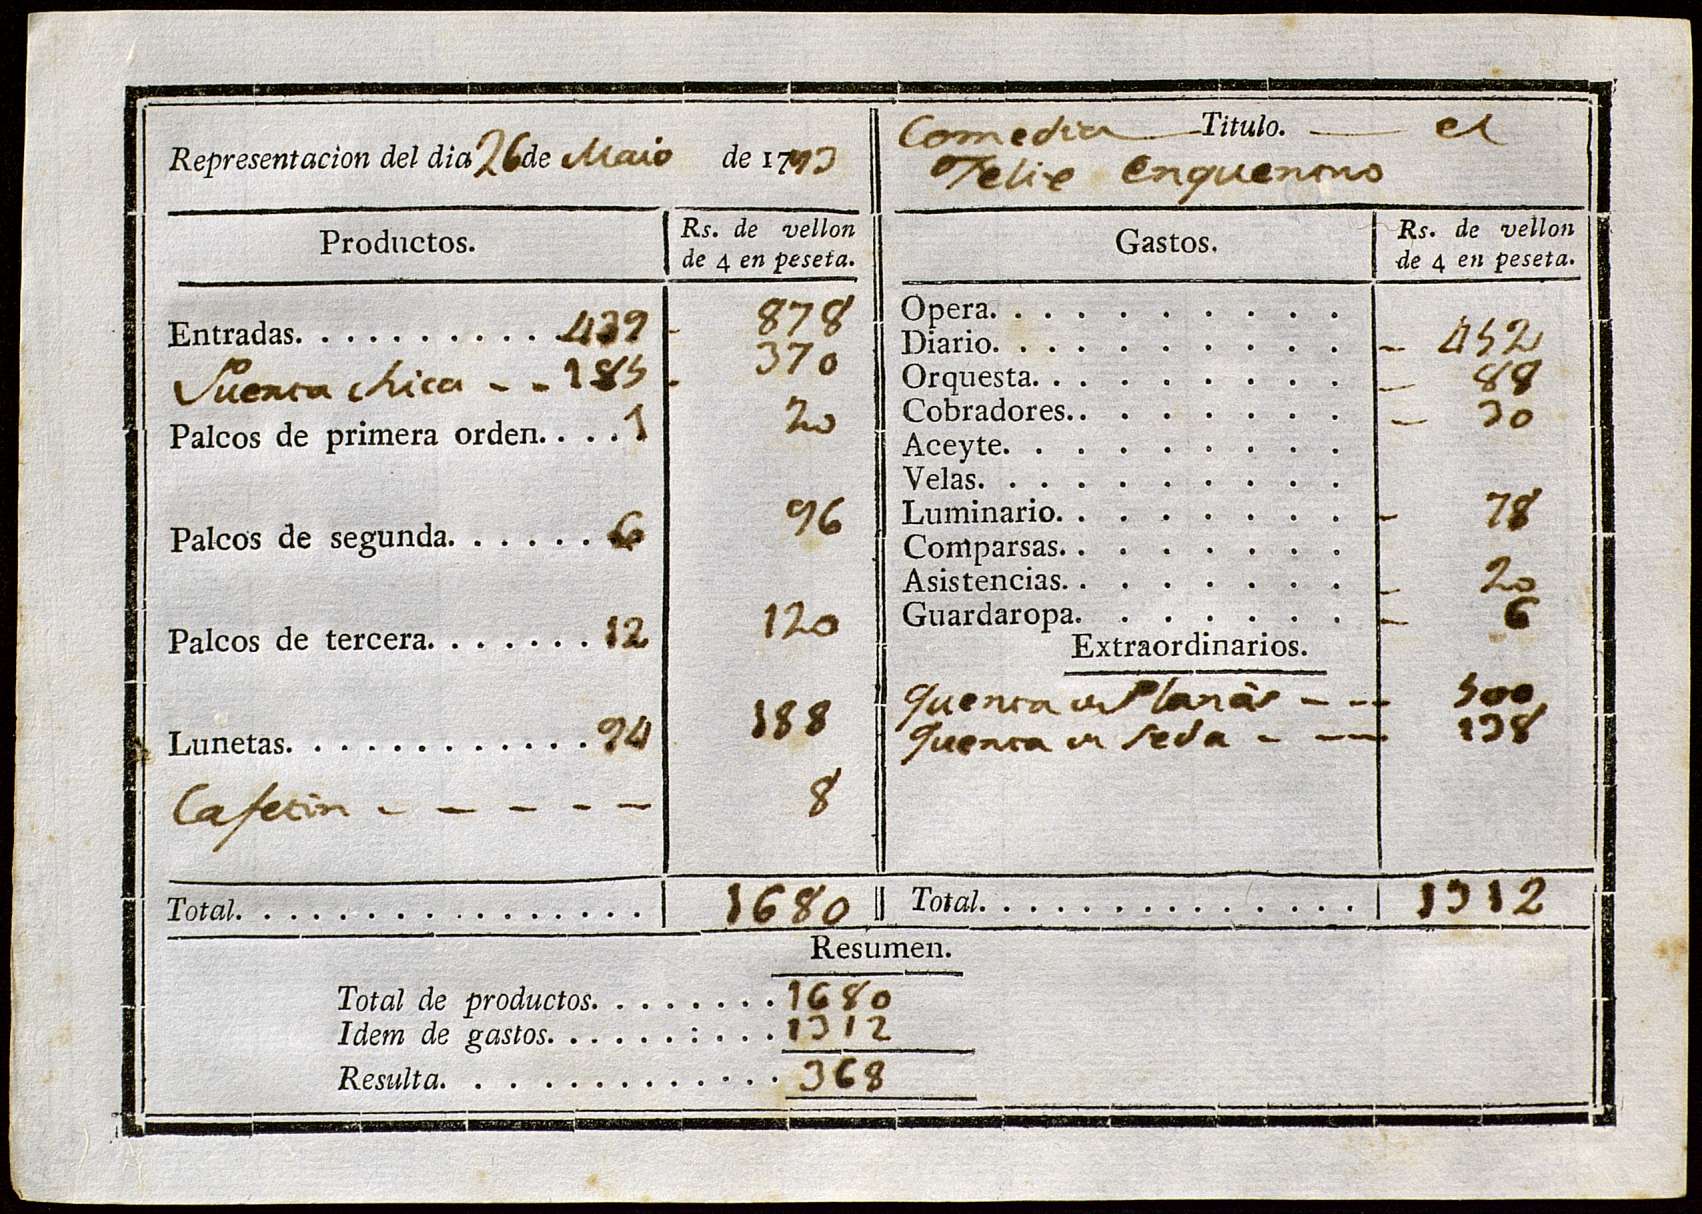 Representacion del dia 26 de Maio de 1793
Comedia Titulo. el
Felix enquentro
Productos. Rs. de vellon
de 4 en peseta.
Gastos. Rs. de vellon
de 4 en peseta.
Entradas. . . . . . . . . . . 439 - 878
Puerta chica - - 185 - 370
Palcos de primera orden. . . . 1 20
Palcos de segunda. . . . . . . 6 96
Palcos de tercera. . . . . . . 12 120
Lunetas. . . . . . . . . . . . 94 188
Cafetin - - - - - - 8
Total. . . . . . . . . . . . . . . . 1680
Opera. . . . . . . . . . .
Diario. . . . . . . . . . . - 452
Orquesta. . . . . . . . . . - 88
Cobradores. . . . . . . . . - 30
Aceyte. . . . . . . . . . .
Velas. . . . . . . . . . .
Luminario. . . . . . . . . - 78
Comparsas. . . . . . . . .
Asistencias. . . . . . . . - 20
Guardaropa. . . . . . . . - 6
Extraordinarios.
quenta de Planàs - - - 500
quenta de seda - - - 138
Total. . . . . . . . . . . . . . . 1312
Resumen.
Total de productos. . . . . . . . 1680
Idem de gastos. . . . . . : . . . 1312
Resulta. . . . . . . . . . . . . 368